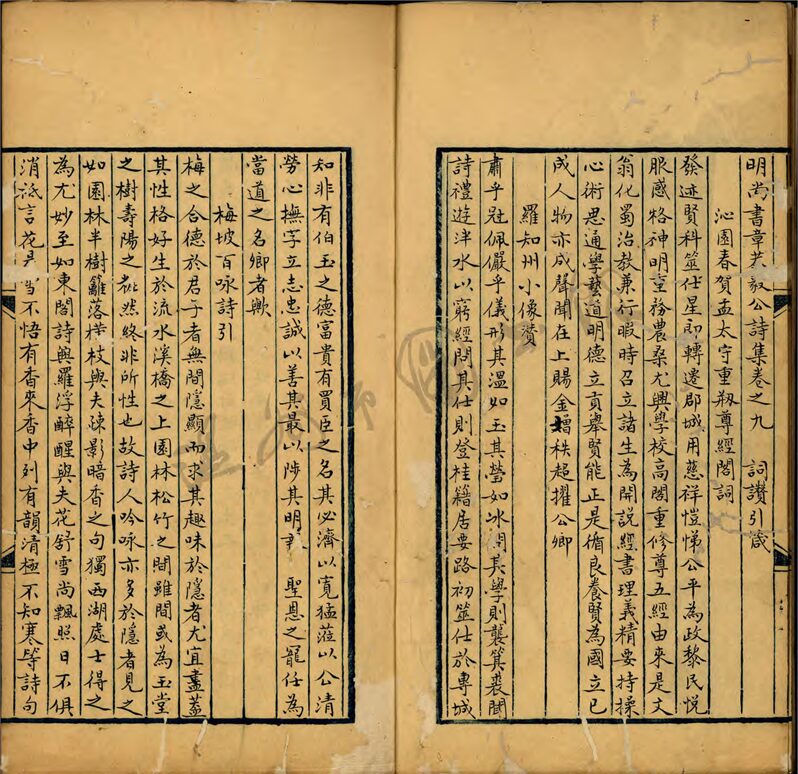 明尚書章恭毅公詩集卷之九　詞讚引箴
沁園春賀孟太守重剏尊經閣詞
發迹賢科筮仕星郎轉遷郡城用慈祥愷悌公平為政黎民悦
服感格神明重務農桑尤興學校高閣重修尊五經由來是文
翁化蜀治教兼行暇時召立諸生為開説經書理義精要持操
心術思通學藝道明德立貢舉賢能正是循良養賢為國立已
成人物亦成聲聞在上賜金增秩超擢公卿
羅知州小像讚
肅乎冠佩儼乎儀形其溫如玉其瑩如冰問其學則襲箕裘聞
詩禮遊泮水以窮經問其仕則登桂籍居要路初筮仕於專城
知非有伯玉之德富貴有買臣之名其必濟以寬猛蒞以公清
勞心撫字立志忠誠以善其最以陟其明事　聖恩之寵任為
當道之名卿者歟
梅坡百咏詩引
梅之合德於君子者無間隱顯而求其趣味於隱者尤宜盡蓋
其性格好生於流水溪橋之上園林松竹之間雖間或為玉堂
之樹壽陽之粧然終非所性也故詩人吟咏亦多於隱者見之
如園林半樹籬落横枝與夫疎影暗香之句獨西湖處士得之
為尤妙至如東閣詩興羅浮醉醒與夫花舒雪尚飄照日不俱
消祇言花是當不悟有香來香中列有韻清極不知寒等詩句